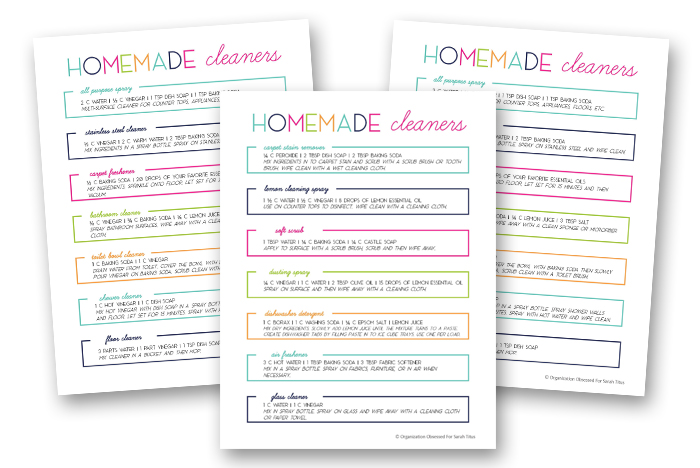 HOMEMADE cleaners
all purpose spray
2 C WATER | ½ C VINEGAR | 1 TSP DISH SOAP | 1 TSP BAKING SODA
MULTI-SURFACE CLEANER FOR COUNTER TOPS, APPLIANCES,
stainless steel cleaner
½ C VINEGAR | 2 C WARM WATER | 2 TBSP
MIX INGREDIENTS IN A SPRAY BOTTLE. SPRAY ON STAINLESS
carpet freshener
½ C BAKING SODA | 20 DROPS OF YOUR FAVORITE
MIX INGREDIENTS. SPRINKLE ONTO FLOOR. LET SET FOR
VACUUM.
bathroom cleaner
C VINEGAR | ½ C BAKING SODA | ¼ C LEMON JUICE |
SPRAY BATHROOM SURFACES. WIPE AWAY WITH A
CLOTH.
toilet bowl cleaner
C BAKING SODA | 1 C VINEGAR
DRAIN WATER FROM TOILET. COVER THE BOWL WITH
POUR VINEGAR ON BAKING SODA. SCRUB CLEAN WITH
shower cleaner
1 C HOT VINEGAR | 1 C DISH SOAP
MIX HOT VINEGAR WITH DISH SOAP IN A SPRAY
AND FLOOR. LET SET FOR 15 MINUTES. SPRAY WITH
floor cleaner
3 PARTS WATER | 1 PART VINEGAR | 1 TSP DISH
MIX CLEANER IN A BUCKET AND THEN MOP.
HOMEMADE cleaners
carpet stain remover
¼ C PEROXIDE | 2 TBSP DISH SOAP | 2 TBSP BAKING SODA
MIX INGREDIENTS IN TO CARPET STAIN AND SCRUB WITH A SCRUB BRUSH OR TOOTH
BRUSH. WIPE CLEAN WITH A WET CLEANING CLOTH.
lemon cleaning spray
1 ½ WATER | ½ C VINEGAR | 8 DROPS OF LEMON ESSENTIAL OIL
USE ON COUNTER TOPS TO DISINFECT. WIPE CLEAN WITH A CLEANING CLOTH.
soft scrub
1 TBSP WATER | ¾ C BAKING SODA | ¼ C CASTLE SOAP
APPLY TO SURFACE WITH A SCRUB BRUSH, SCRUB AND THEN WIPE AWAY.
dusting spray
¼ C VINEGAR | 1 C WATER | 2 TBSP OLIVE OIL | 15 DROPS OF LEMON ESSENTIAL OIL
SPRAY ON SURFACE AND THEN WIPE AWAY WITH A CLEANING CLOTH.
dishwasher detergent
1 C BORAX | 1 C WASHING SODA | ½ C EPSOM SALT | LEMON JUICE
MIX DRY INGREDIENTS. SLOWLY ADD LEMON JUICE UNTIL THE MIXTURE TURNS TO A PASTE.
CREATE DISHWASHER TABS BY FILLING PASTE IN TO ICE CUBE TRAYS. USE ONE PER LOAD.
air freshener
2 C HOT WATER | 1 TBSP BAKING SODA | 3 TBSP FABRIC SOFTENER
MIX IN A SPRAY BOTTLE. SPRAY ON FABRICS, FURNITURE, OR IN AIR WHEN
NECESSARY.
glass cleaner
1 C WATER | 1 C VINEGAR
MIX IN SPRAY BOTTLE. SPRAY ON GLASS AND WIPE AWAY WITH A CLEANING CLOTH
OR PAPER TOWEL.
© Organization Obsessed For Sarah Titus
HOMEMADE cleaners
all purpose spray
1 TSP DISH SOAP | 1 TSP BAKING SODA
COUNTER TOPS, APPLIANCES, FLOORS, ETC.
TBSP
SPRAY ON STAINLESS STEEL AND WIPE CLEAN
DROPS OF YOUR FAVORITE ESSENTIAL OILS
ONTO FLOOR. LET SET FOR 15 MINUTES AND THEN
SODA | ¼ C LEMON JUICE | 3 TBSP SALT
WIPE AWAY WITH A CLEAN SPONGE OR MICROFIBER
COVER THE BOWL WITH BAKING SODA, THEN SLOWLY
SODA. SCRUB CLEAN WITH A TOILET BRUSH.
SOAP IN A SPRAY BOTTLE. SPRAY SHOWER WALLS
MINUTES. SPRAY WITH HOT WATER AND WIPE CLEAN.
1 TSP DISH SOAP
THEN MOP.
© Organization Obsessed For Sarah Titus